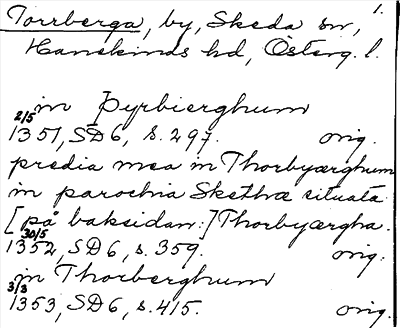 1.
Torrberga, by, Skeda sn,
Hanekinds hd, Österg. l.
in Þyrbierghum
2/5 1351, SD 6, s. 297. orig.
predia mea in Thorbyærghum
in parochia Skethæ situata
[på baksidan:] Thorbyærgha.
30/5 1352, SD 6, s. 359. orig.
in Thorberghum
3/3 1353, SD 6, s. 415. orig.